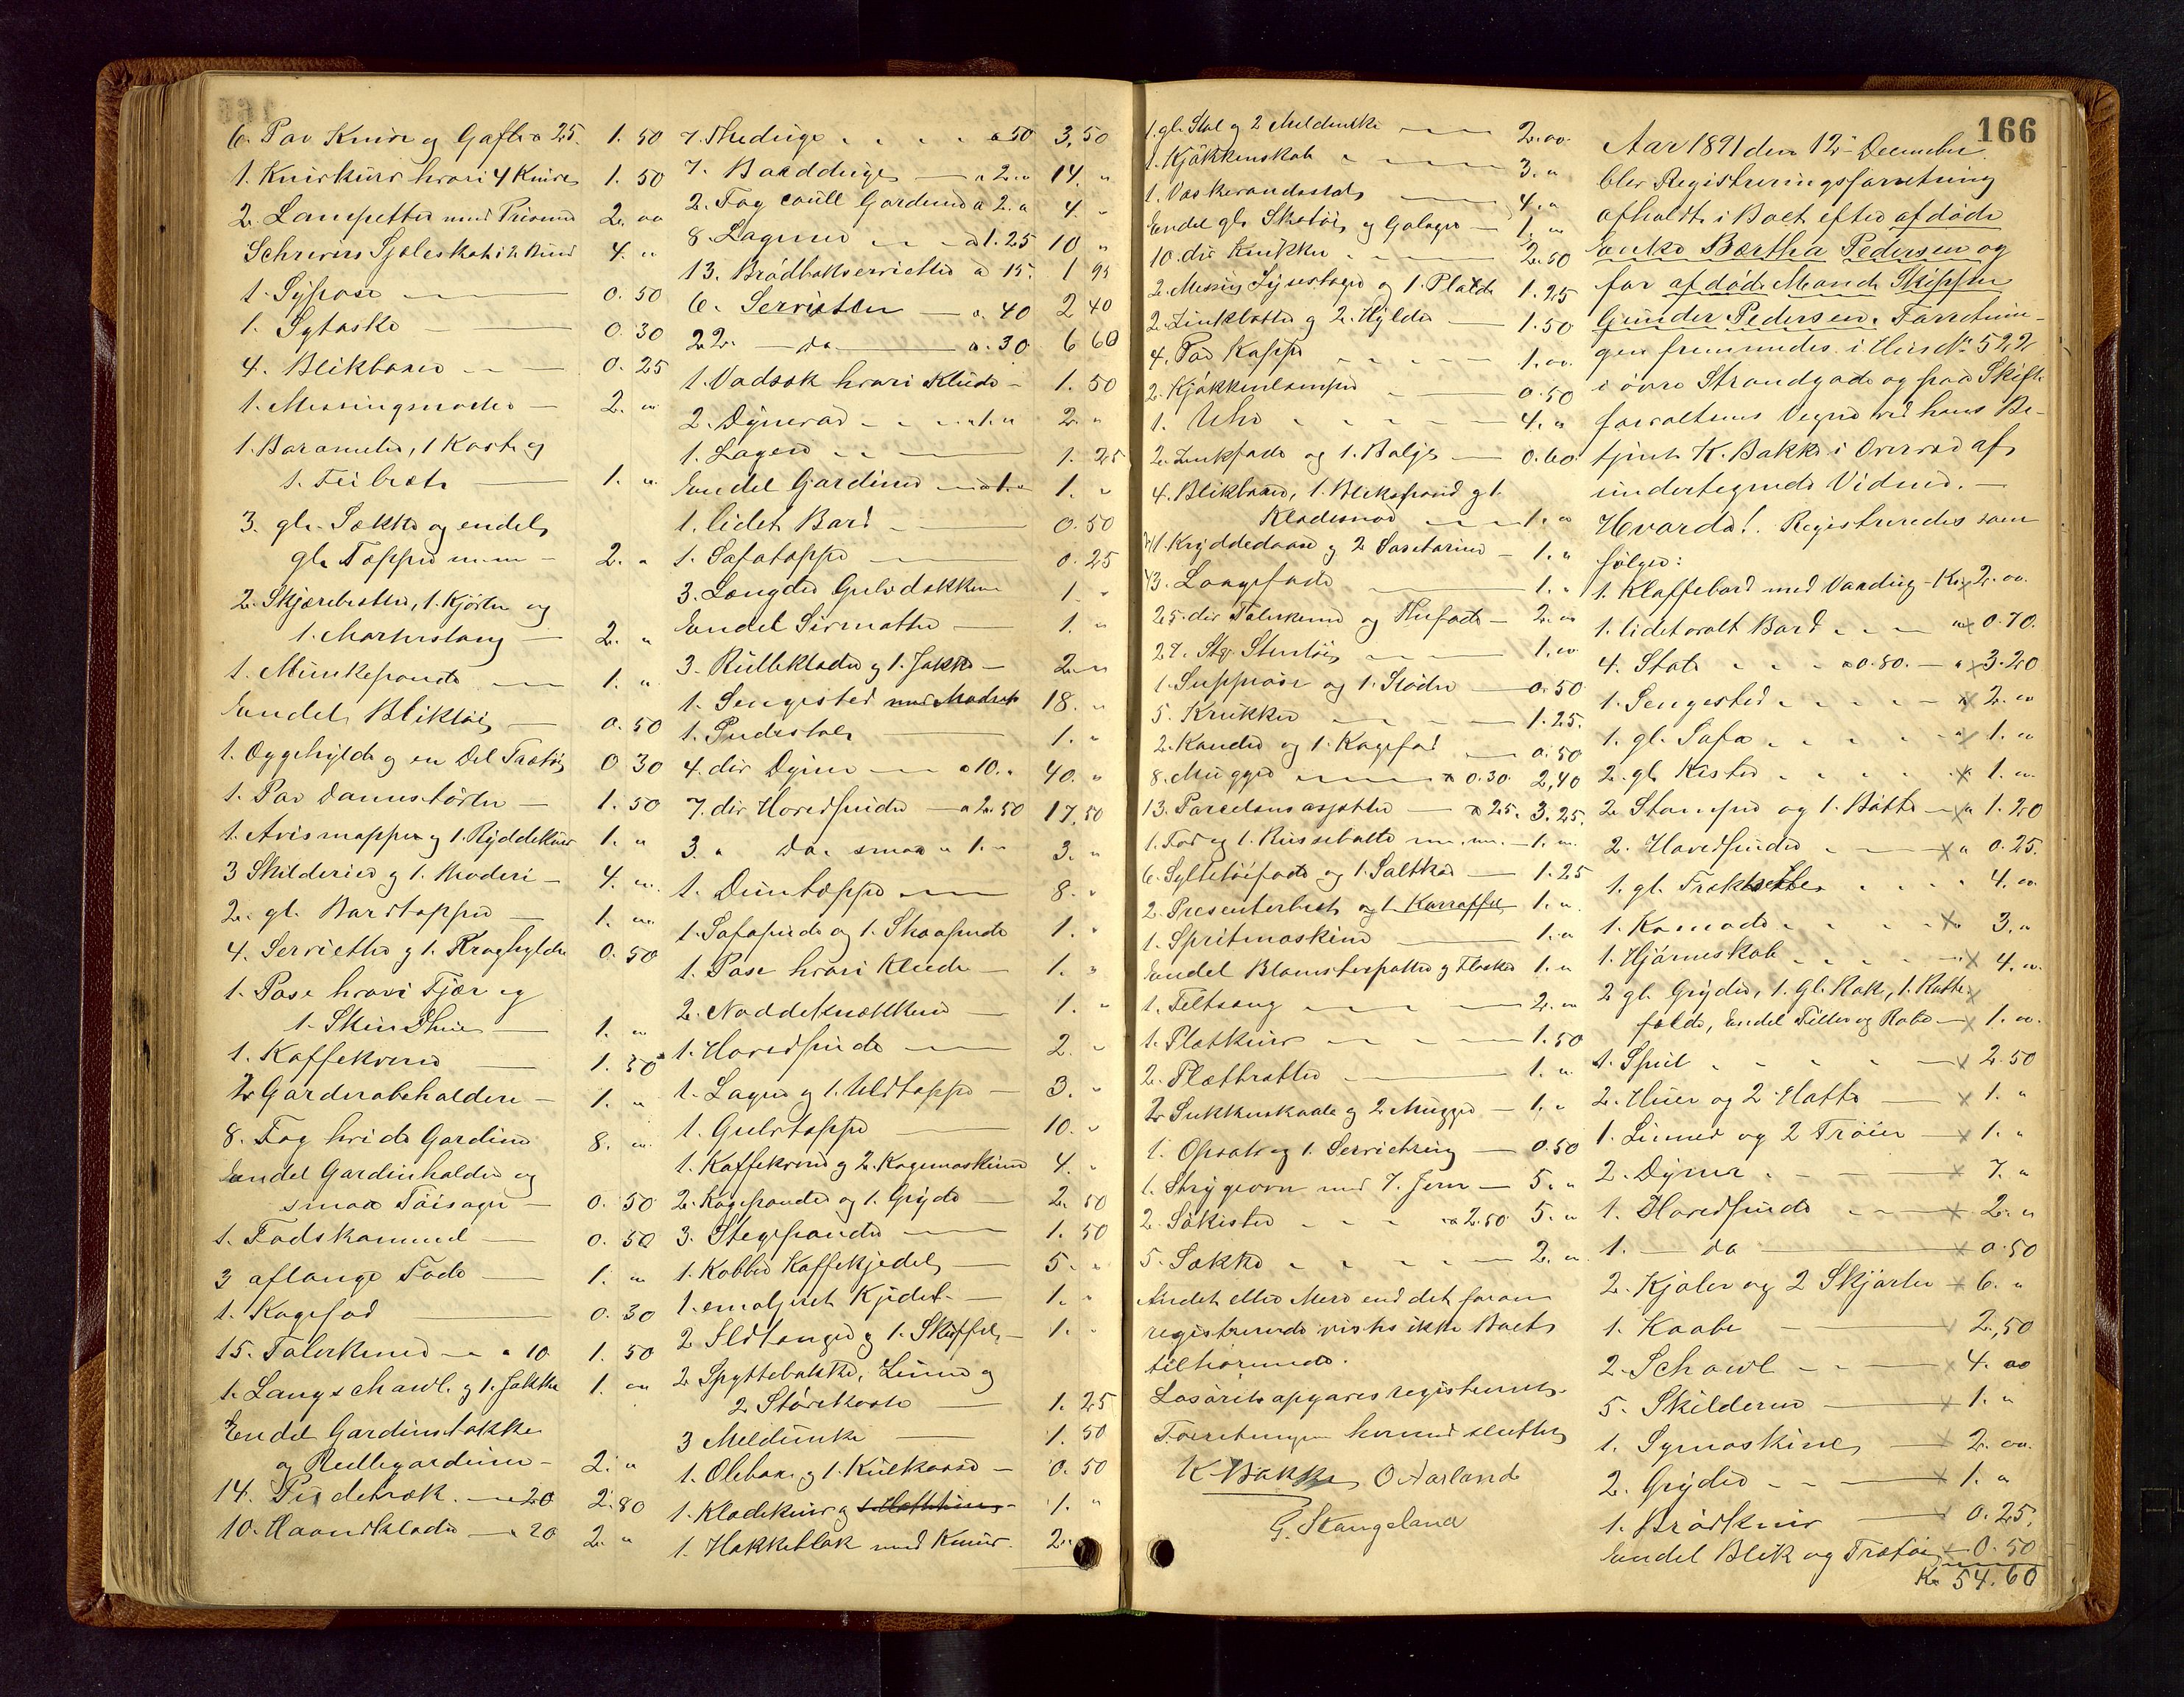 6. Par Knive og Gafler a 25. 1. 50
1. Knivkurv hvori 4 Knive 1. 50
2. Lampetter med Prismer 2. oo
Schrivers Sjøleskab i 2 Bind 4. "
1. Sypose 0. 50
1. Sytaske 0. 30
4. Blikboxer 0. 25
1. Messingmorter 2. "
1. Barometer, 1 Kost og
1. Feibræt 1. "
3. gle Sække og endel
gle Tepper m.m 2. "
2. Skjærebretter, 1. Kjörler og
1. Marterstang 2. "
1. Munkepande 1. "
Endel Bliktöi 0. 50
1. Eggehylde og en Del Trætöi 0 30
1. Par Damestövler 1. 50
1. Avismappe og 1. Ryddekurv 1. "
3 Skilderier og 1. Broderi 4. "
2. gl. Bordtepper 1. "
4. Servietter og 1. Kraghylde 0. 50
1. Pose hvori Fjær og
1. Skind 1. "
1. Kaffekvern 1. 50
2 Garderobeholdere 1. "
8. Fag hvide Gardiner 8. "
Endel Gardinholder og
smaa Töisager 0. 50
1. Fodskammel 0. 50
3 aflange Fade 1. "
1. Kagefad 0. 30
15. Talerkener a 10 1. 50
1. Langschawl. og 1. Jakke 1. "
Endel Gardinstokke
og Rullegardiner 2. "
14. Pudetræk. a 20 2. 80
10. Haandklæder a 20 2. "
7. Theduge a 50 3, 50
7. Bordduge a 2. " 14. "
2. Fag coull Gardiner a 2. " 4. "
8. Lagener a 1. 25 10 "
13. Brödbakservietter a 15. 1 95
6. Servietter a. 40 2 40
22. do a. 30 6 60
1. Vadsæk hvori Klude 1. 50
2. Dynevar a 1. " 2. "
1. Lagen 1. 25
Endel Gardiner 1. "
1. lidet Bord 0. 50
1. Sofatæppe 0. 25
3. Længder Gulvdækken 1. "
Endel Sivmatter 1. "
3. Rulleklæder og 1. Jakke 2. "
1. Sengested med Madrat 18. "
1. Pudestol 1. "
4. div Dyner a 10. " 40. "
7. div Hovedpuder a 2. 50 17, 50
3. " do. smaa a 1. " 3. "
1. Duntæppe 8. "
1. Sofapude og 1. Skoapude 1. "
1. Pose hvori Klude 1. "
2. Nøddeknækkere 1. "
1. Hovedpude 2. "
1. Lagen og 1. Uldtæppe 3. "
1. Gulvtæppe 10. "
1. Kaffekvern og 2. Kagemaskiner 4. "
2. Kagepander og 1. Gryde 2. 50
3. Stegepander 1. 50
1. Kobber Kaffekjedel 5. "
1. emaljeret Kjedel 1. "
2 Ildtænger og 1. Skuffel 1. "
2. Spyttebakke, Limer og
2 Störekoste 1. 25
3 Meldunke 1. 50
1. Olebox og 1. Kulkasse 0. 50
1. Klædekurv og 1. "
1. Hakkeblok med Kniv. 2. "
1. gl. Stol og 2 Meldunke 2. oo.
1. Kjökkenskab 3. "
1. Vaskevandsstol 4. "
Endel gle Skotöi og Galoger 1. "
10. div Krukker 2. 50
2. Messing Lysestager og 1. Platde 1. 25
2. Zinkbøtter og 2. Hylder 1. 50
4. Par Kopper 1. oo.
2. Kjökkenlamper 0. 50
1. Uhr 4. "
2. Zinkfade og 1. Balje 0. 60.
4. Blikboxer, 1. Blikspand og 1.
Klædesnor 1. "
1. Krydderdaase og 2. 1. "
3. Langefade 1. "
25. div Talerkener og Thefade 2. "
27. Stgr. Stentöi 1. "
1. Suppeöse og 1. Slödre 0. 50
5. Krukker 1. 25.
2. Kander og 1. Kagefad 0. 50
8. Mugger a 0. 30. 2, 40
13. Porcelænsasjetter a 25. 3. 25.
1. Fad og 1. m. m. 1. "
6. Syltetöifade og 1. Saltkar 1. 25
2. Presenterbræt og 1. Karaffel 1. "
1. Spritmaskine 1. "
Endel Blomsterpotter og Flasker 1. "
1. Feltseng 2. "
1. Platkurv 1. 50
2. Plætbrætter 1. "
2 Sukkerskaale og 2 Mugger 1. "
1. Opsats og 1. Servietring 0. 50
1. Strygeovn med 7. Jern 5. "
2. Sökister a 2. 50 5. "
5. Sække 2. "
Andet eller Mere end det foran
registrerede vistes ikke Boets
tilhörende.
Lösöret opgaves registreret.
Forretningen hermed sluttes
K. Bakke O Aarland
G. Stangeland
166
Aar 1891 den 12 December
blev Registreringsforretning
afholdt i Boet efter afdöde
Enke Bertha Pedersen og
før afdöde Mand Skipper
Gunder Pedersen. Forretnin-
gen fremmedes i Hus No 522
i övre Strandgade og paa Skifte
forvalterens Vegne ved hans Be-
tjent K. Bakke i Overvær af
undertegnede Vidner. –
Hvorda! Registreredes som
følger:
1. Klaffebord med Voxdug Kr. 2. oo.
1. lidet ovalt Bord 0. 70.
4. Stole a 0. 80. 3. 20
1. Sengested 2. oo
1. gl. Sofa 1. "
2. gle Kister 1. "
2 Stamper og 1. Bötte 1. 20
2. Hovedpuder 0. 25.
1. gl. 4. oo
1. Komode 3. "
1. Hjörneskab 4. "
2 gl. Gryder, 1. gl. Kak, 1. Rotte
fælde, Endel Filler og Rabe 1. "
1. Speil 2. 50
2. Huer og 2 Hatte 1. "
1. Linned og 2 Tröier 1. "
2. Dyner 7. "
1. Hovedpude 2. "
1. do 0. 50
2. Kjoler og 2 Skjörter 6. "
1. Kaabe 2, 50
2. Schawl 4. oo
5. Skilderier 1. "
1. Symaskine 2. oo.
2. Gryder 1. "
1. Brödkurv 0. 25.
Endel Blik og Trætöi 0. 50
Kr 54. 60